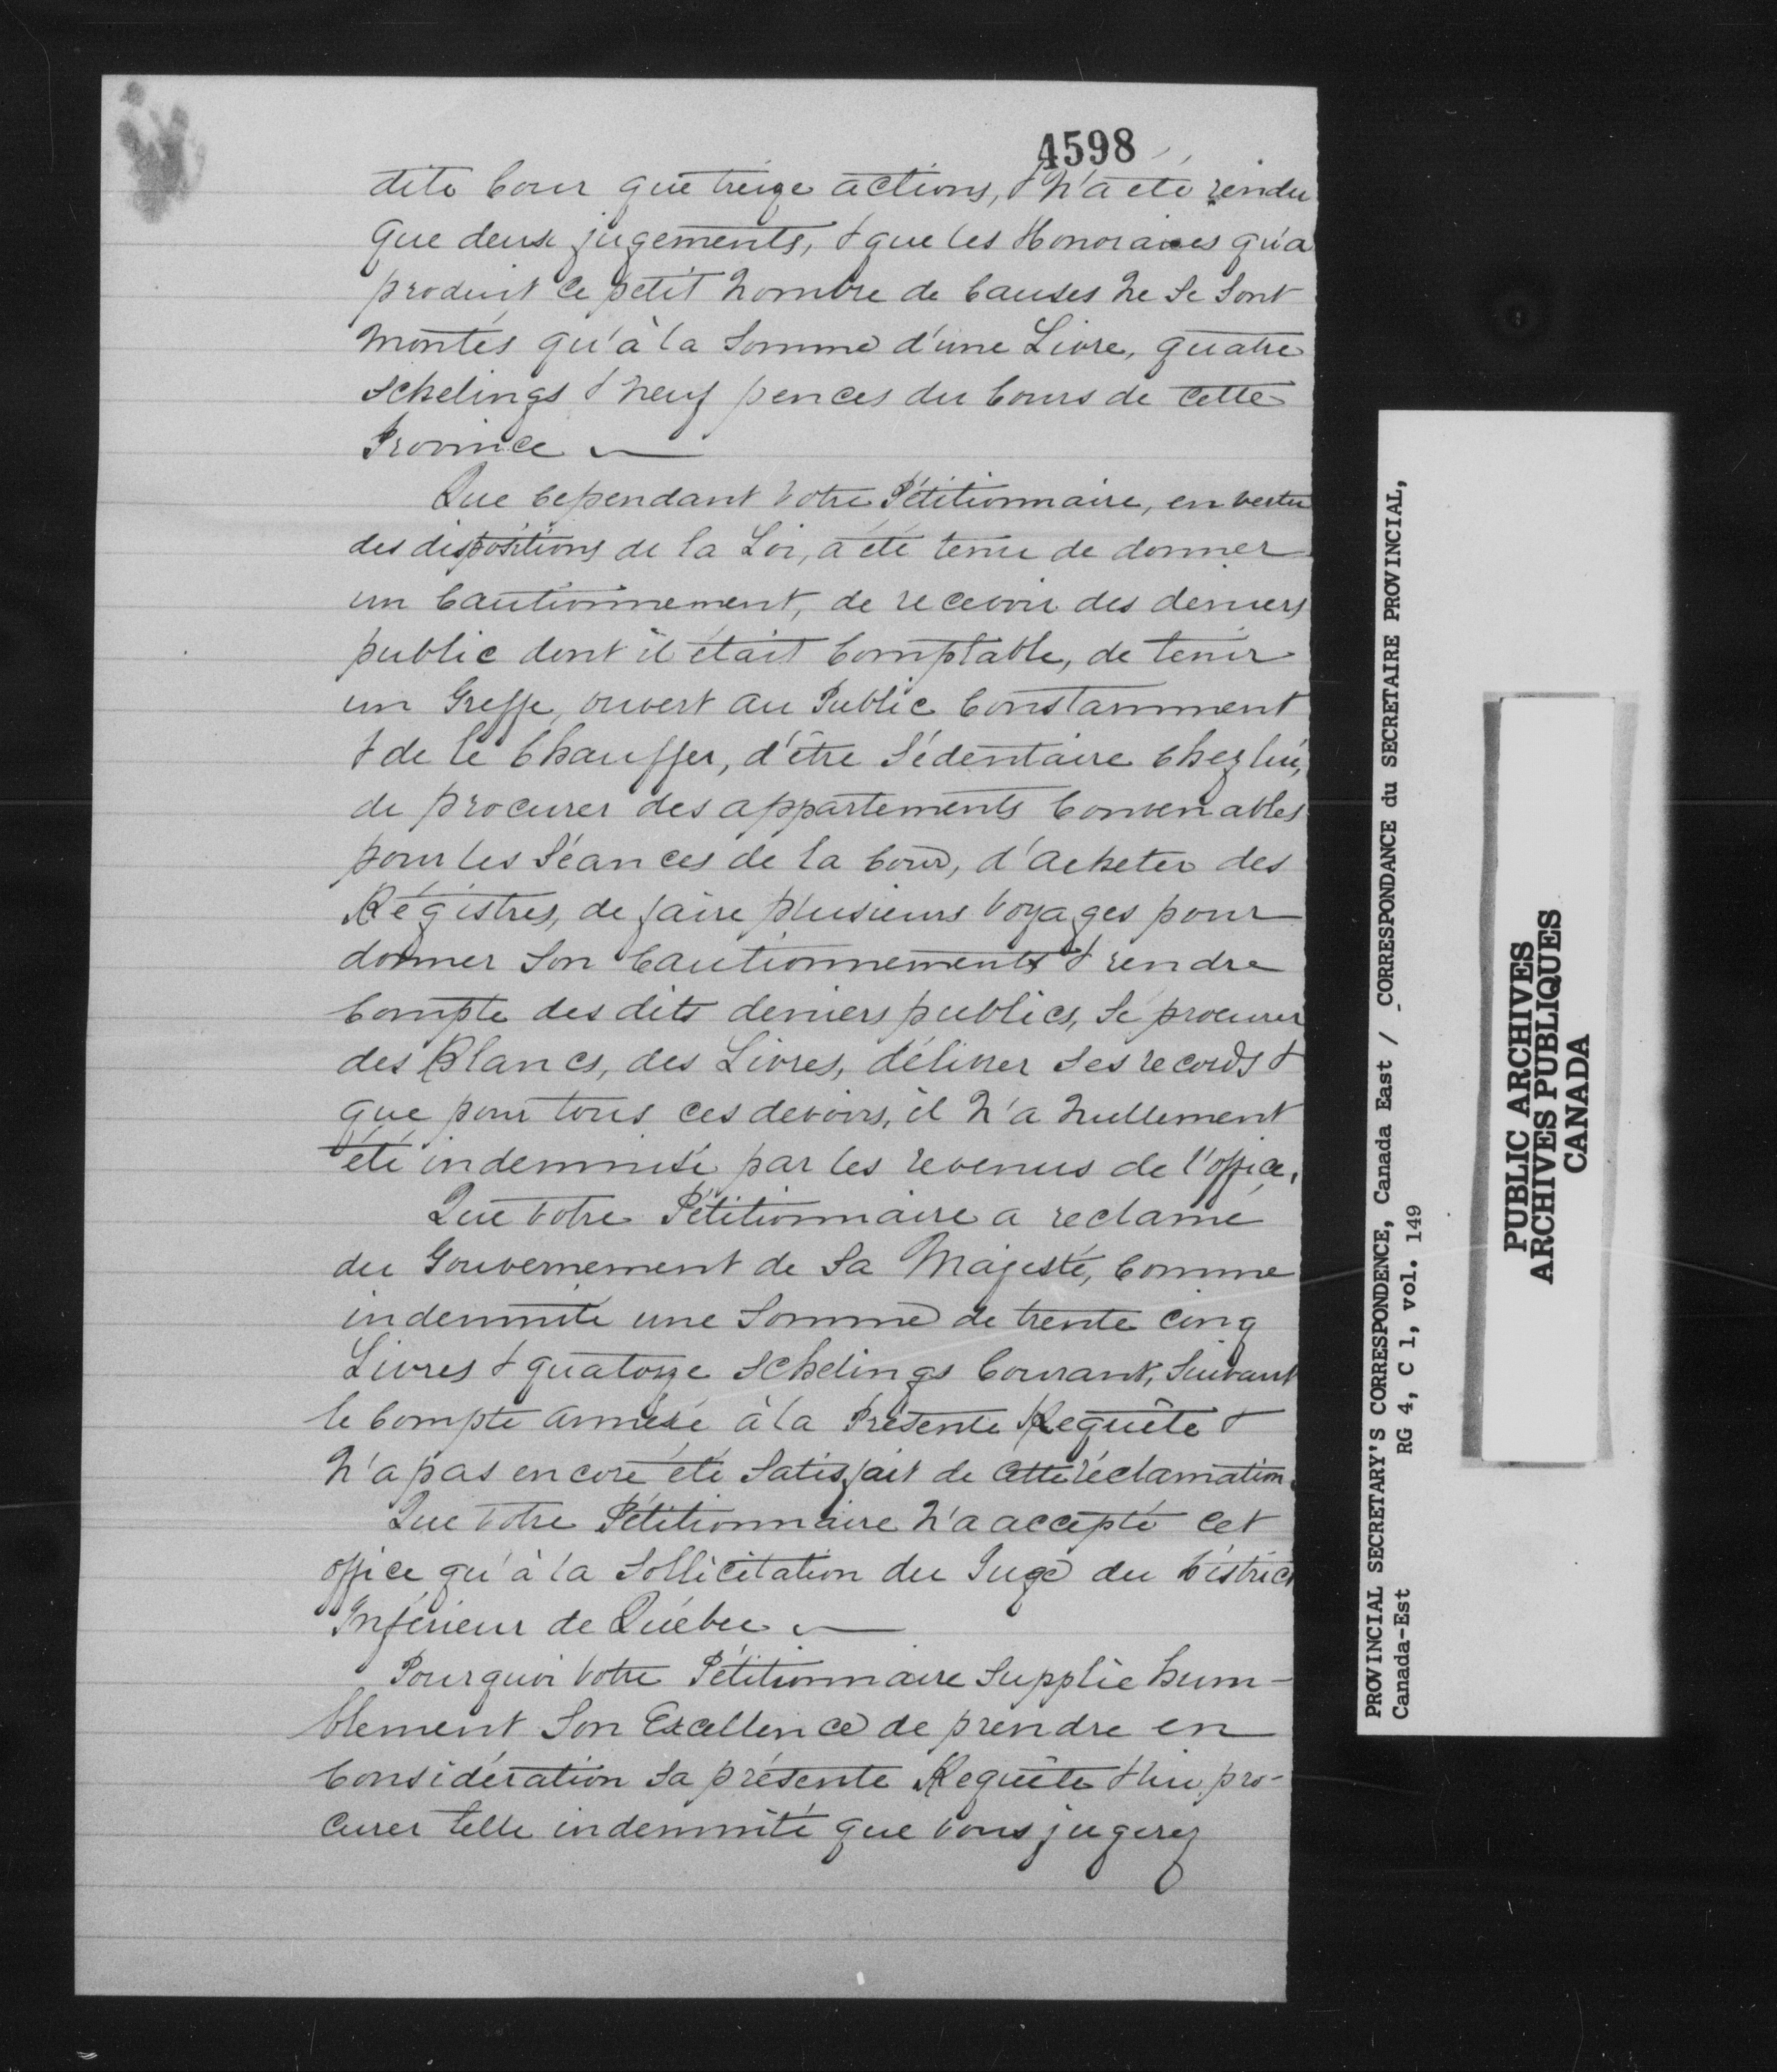 4598
dite Cour que treize actions, & n'a été rendu
que deux jugements, & que les Honoraires qu'a
produit ce petit nombre de Causes ne se sont
montés qu'à la somme d'une Livre, quatre
Schelings & neuf pences du Cours de cette
Province
Que Cependant Votre Pétitionnaire, en vertu
des dispositions de la Loi, a été tenu de donner
un Cautionnement, de recevoir des deniers
public dont il était Comptable, de tenir
un Greffe, ouvert au Public Constamment
& de le Chauffer, d'être Sédentaire Chez lui,
de procurer des appartements Convenables
pour les Séances de la Cour, d'acheter des
Régistres, de faire plusieurs Voyages pour
donner son Cautionnements & rendre
Compte des dits deniers publics, se procurer
des Blancs, des Livres, délivrer ses records &
que pour tous ces devoirs, il n'a nullement
été indemnisé par les revenus de l'office.
Que Votre Pétitionnaire a reclamé
du Gouvernement de Sa Majesté, Comme
indemnité une somme de trente cinq
Livres & quatorze Schelings Courant, Suivant
le Compte annexé à la Présente Requête &
n'a pas encore été Satisfait de cette réclamation.
Que Votre Pétitionnaire n'a accepté cet
office qu'à la Sollicitation du Juge du District
Inférieur de Québec
Pourquoi Votre Pétitionnaire Supplie hum-
blement Son Excellence de prendre en
Considération sa présente Requête & lui pro-
curer telle indemnité que vous jugerez
PROVINCIAL SECRETARY'S CORRESPONDENCE, Canada East / CORRESPONDANCE du SECRETAIRE PROVINCIAL,
Canada-Est RG 4, C 1, vol. 149
PUBLIC ARCHIVES
ARCHIVES PUBLIQUES
CANADA